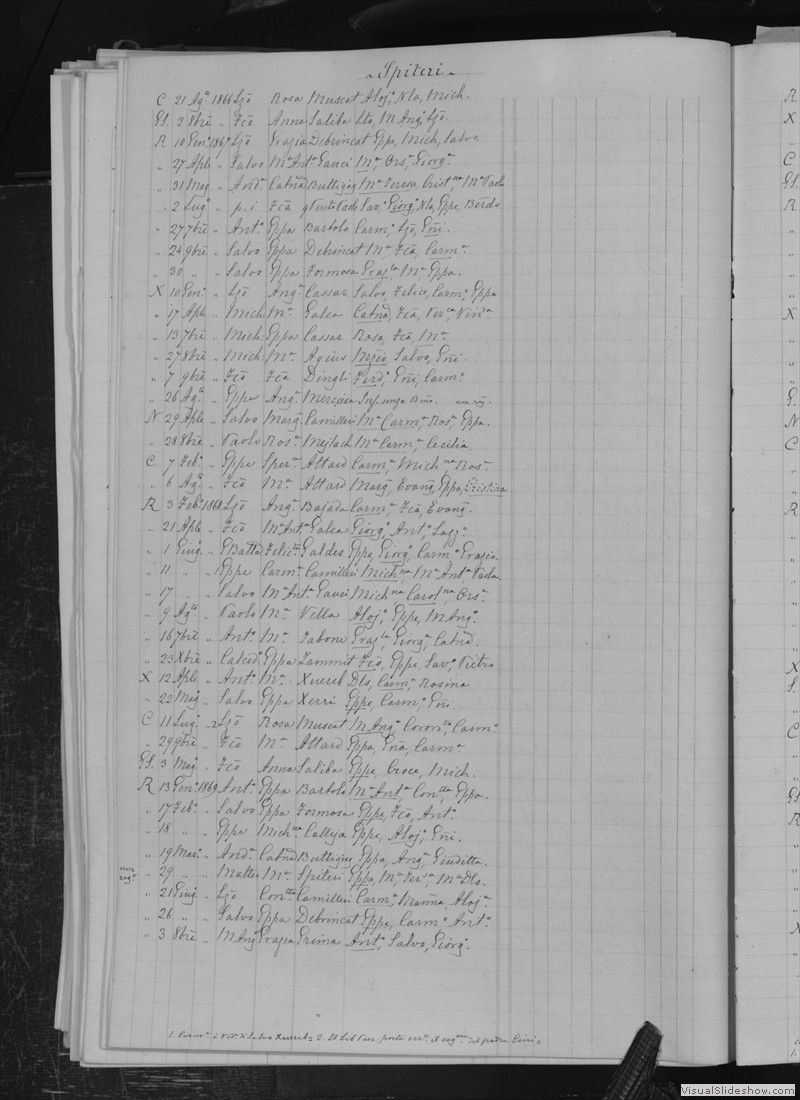 Spiteri
C 21 Agº 1866 Ljō Rosa Muscat Alojº, Nla, Mich.
GS. 2 8bre " Fcō Anna Saliba Lto, M Angº, Ljō.
R 10 Genº 1867 Ljō Grazia Debrincat Gppe, Mich, Salvo
" 27 Aple " Salvo Mª Antª Gauci Mª, Ors, Giorgª
" 31 Mag " Andª Catnā Buttigieg Mª Teresa, Crist, Mª Paola
" 2 Lugº " p.i Fcā Savª, Giorgª, Nla, Gppe, Berdo
" 27 7bre " Antº Gppa Bartolo Carmª, Ljō, Eñi.
" 24 9bre " Salvo Gppa Debrincat Mª, Fcā, Carmª.
" 30 " " Salvo Gppa Formosa Graz Mª Gppa.
X 10 Genº " Ljō Angª Cassar Salvº, Felice, Carmª, Gppa
" 17 Aple " Mich Mª Galea Catnā, Fcā,
" 13 7bre " Mich Gppa Cassar Rosa, Fcā, Mª
" 27 8bre " Mich Mª Agius Salvo, Eñi.
" 7 9bre " Fcō Fcā Dingli Ferdº, Eñi, Carmª
" 26 Agº " Gppe Angª Mercieca
N 29 Aple " Salvo Margª Camilleri Mª Carmª, Rosª, Gppa.
" 28 8bre " Paolo Rosª Mejlach Mª Carmª, Cecilia.
C 7 Febº " Gppe Sperª Attard Carmª, Mich Rosª
" 6 Agº " Fcō Mª Attard Margª, Evang, Gppa,
R 3 Febº 1868 Ljō Angª Bajada Carmª, Fcā, Evang.
" 21 Aple " Fcō Mª Antª Galea Giorgª, Antº,
" 1 Giugº " GBatta Galdes Gppe, Giorgº, Carmª Grazia
" 11 " " 1 Gppe Carmª Camilleri Mich Mª Antª Paola
" 17 " " Salvo Mª Antª Gauci Mich Carol Orsª
" 9 Agº " Paolo Mª Vella Alojº, Gppe, M Angº.
" 16 7bre " Antº Mª Tabone Graz, Giorgª, Catnā.
" 23 Xbre " Calcedº Gppa Zammit Fcō, Gppe, Savº, Pietro
X 12 Aple " Antº Mª Xuereb Dls, Carmª, Rosina
" 22 Mag " Salvo Gppa Xerri Gppe, Carmª, Eñi.
C 11 Lugº " 2 Ljō Rosa Muscat M Angº, Carmª.
" 29 9bre " Fcō Mª Attard Gppa, Eñia, Carmª
GS. 3 Mag " Fcō Anna Saliba Gppe, Croce, Mich.
R 13 Genº 1869 Antº Gppa Bartolo Mª Antª, Con, Gppa.
" 17 Febº " Salvo Gppa Formosa Gppe, Fcō, Antº
" 18 " " Gppe Mich Calleja Gppe, Alojº, Eñi.
" 19 Marº " Andª Catnā Buttigieg Gppa, Angª, Giuditta.
non regº " 29 " " Matteo Mª Spiteri Gppa, Mª Ters, Mª Dls.
" 21 Giugº " Ljō Con Camilleri Carmª, Marina, Alojª
" 26 " " Salvo Gppa Debrincat Gppe, Carmª Antº
" 3 8bre " M Angº Grazia Grima Antº, Salvo, Giorgº.
1. di Salvo Xuereb = 2. Il Lib porta il cogme del padre
VisualSlideshow.com
R
X
C
GS.
R
X
G.
N
C
R
X
S.
C
GS
R
X